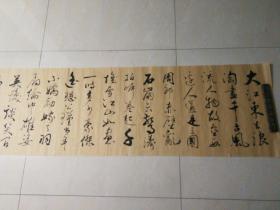 大江東去浪
淘盡千古風
流人物故壘西
邊人道是三國
周郎赤壁亂
石崩雲驚濤
拍岸捲起千
堆雪江山如畫
一時多少豪傑
遙想公瑾當年
小喬初嫁了羽
扇綸巾雄姿
英發談笑間